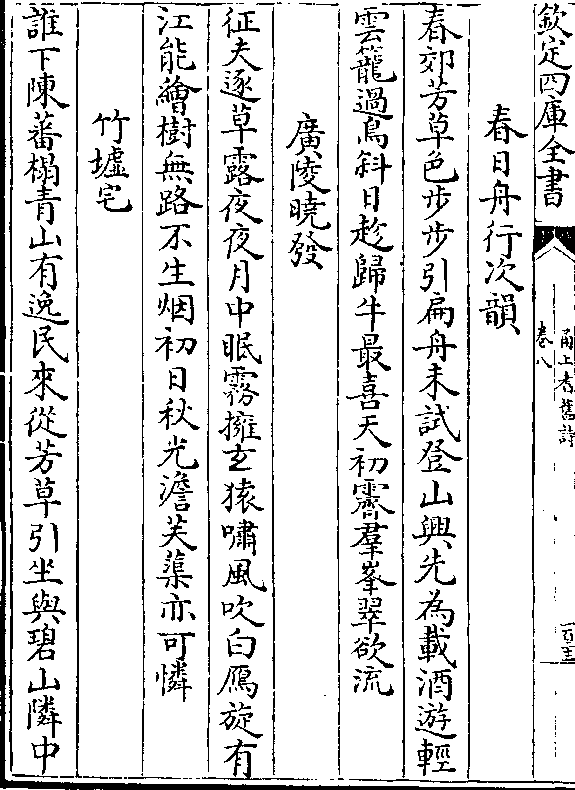 欽定四庫全書
甬上耆舊詩
卷八
春日舟行次韻
春郊芳草色步步引扁舟未試登山興先為載酒遊輕
雲籠過鳥斜日趁歸牛最喜天初霽羣峯翠欲流
廣陵曉發
征夫逐草露夜夜月中眠霧擁玄猿嘯風吹白鴈旋有
江能繪樹無路不生烟初日秋光澹芙蕖亦可憐
竹墟宅
誰下陳蕃榻青山有逸民來從芳草引坐與碧山隣中